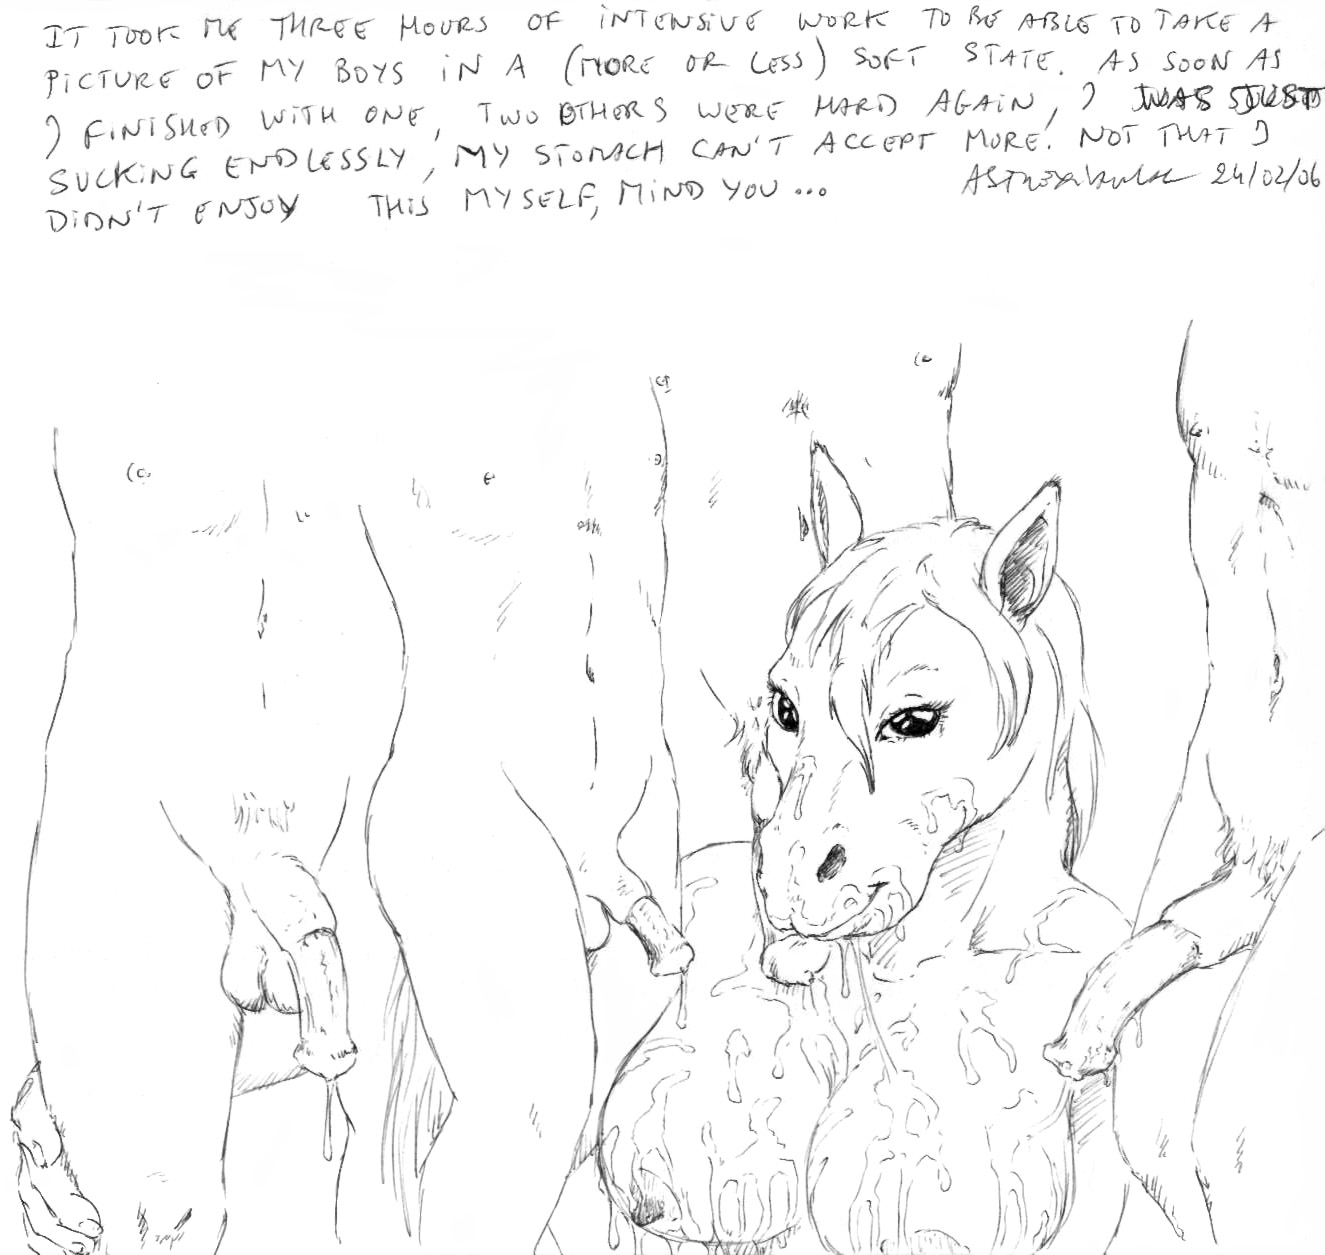 IT TOOK ME THREE HOURS OF INTENSIVE WORK TO BE ABLE TO TAKE A
PICTURE OF MY BOYS IN A (MORE OR LESS) SOFT STATE. AS SOON AS
I FINISHED WITH ONE, TWO OTHERS WERE HARD AGAIN, I WAS JUST
SUCKING ENDLESSLY, MY STOMACH CAN'T ACCEPT MORE. NOT THAT I
DIDN'T ENJOY THIS MYSELF, MIND YOU... 24/02/06